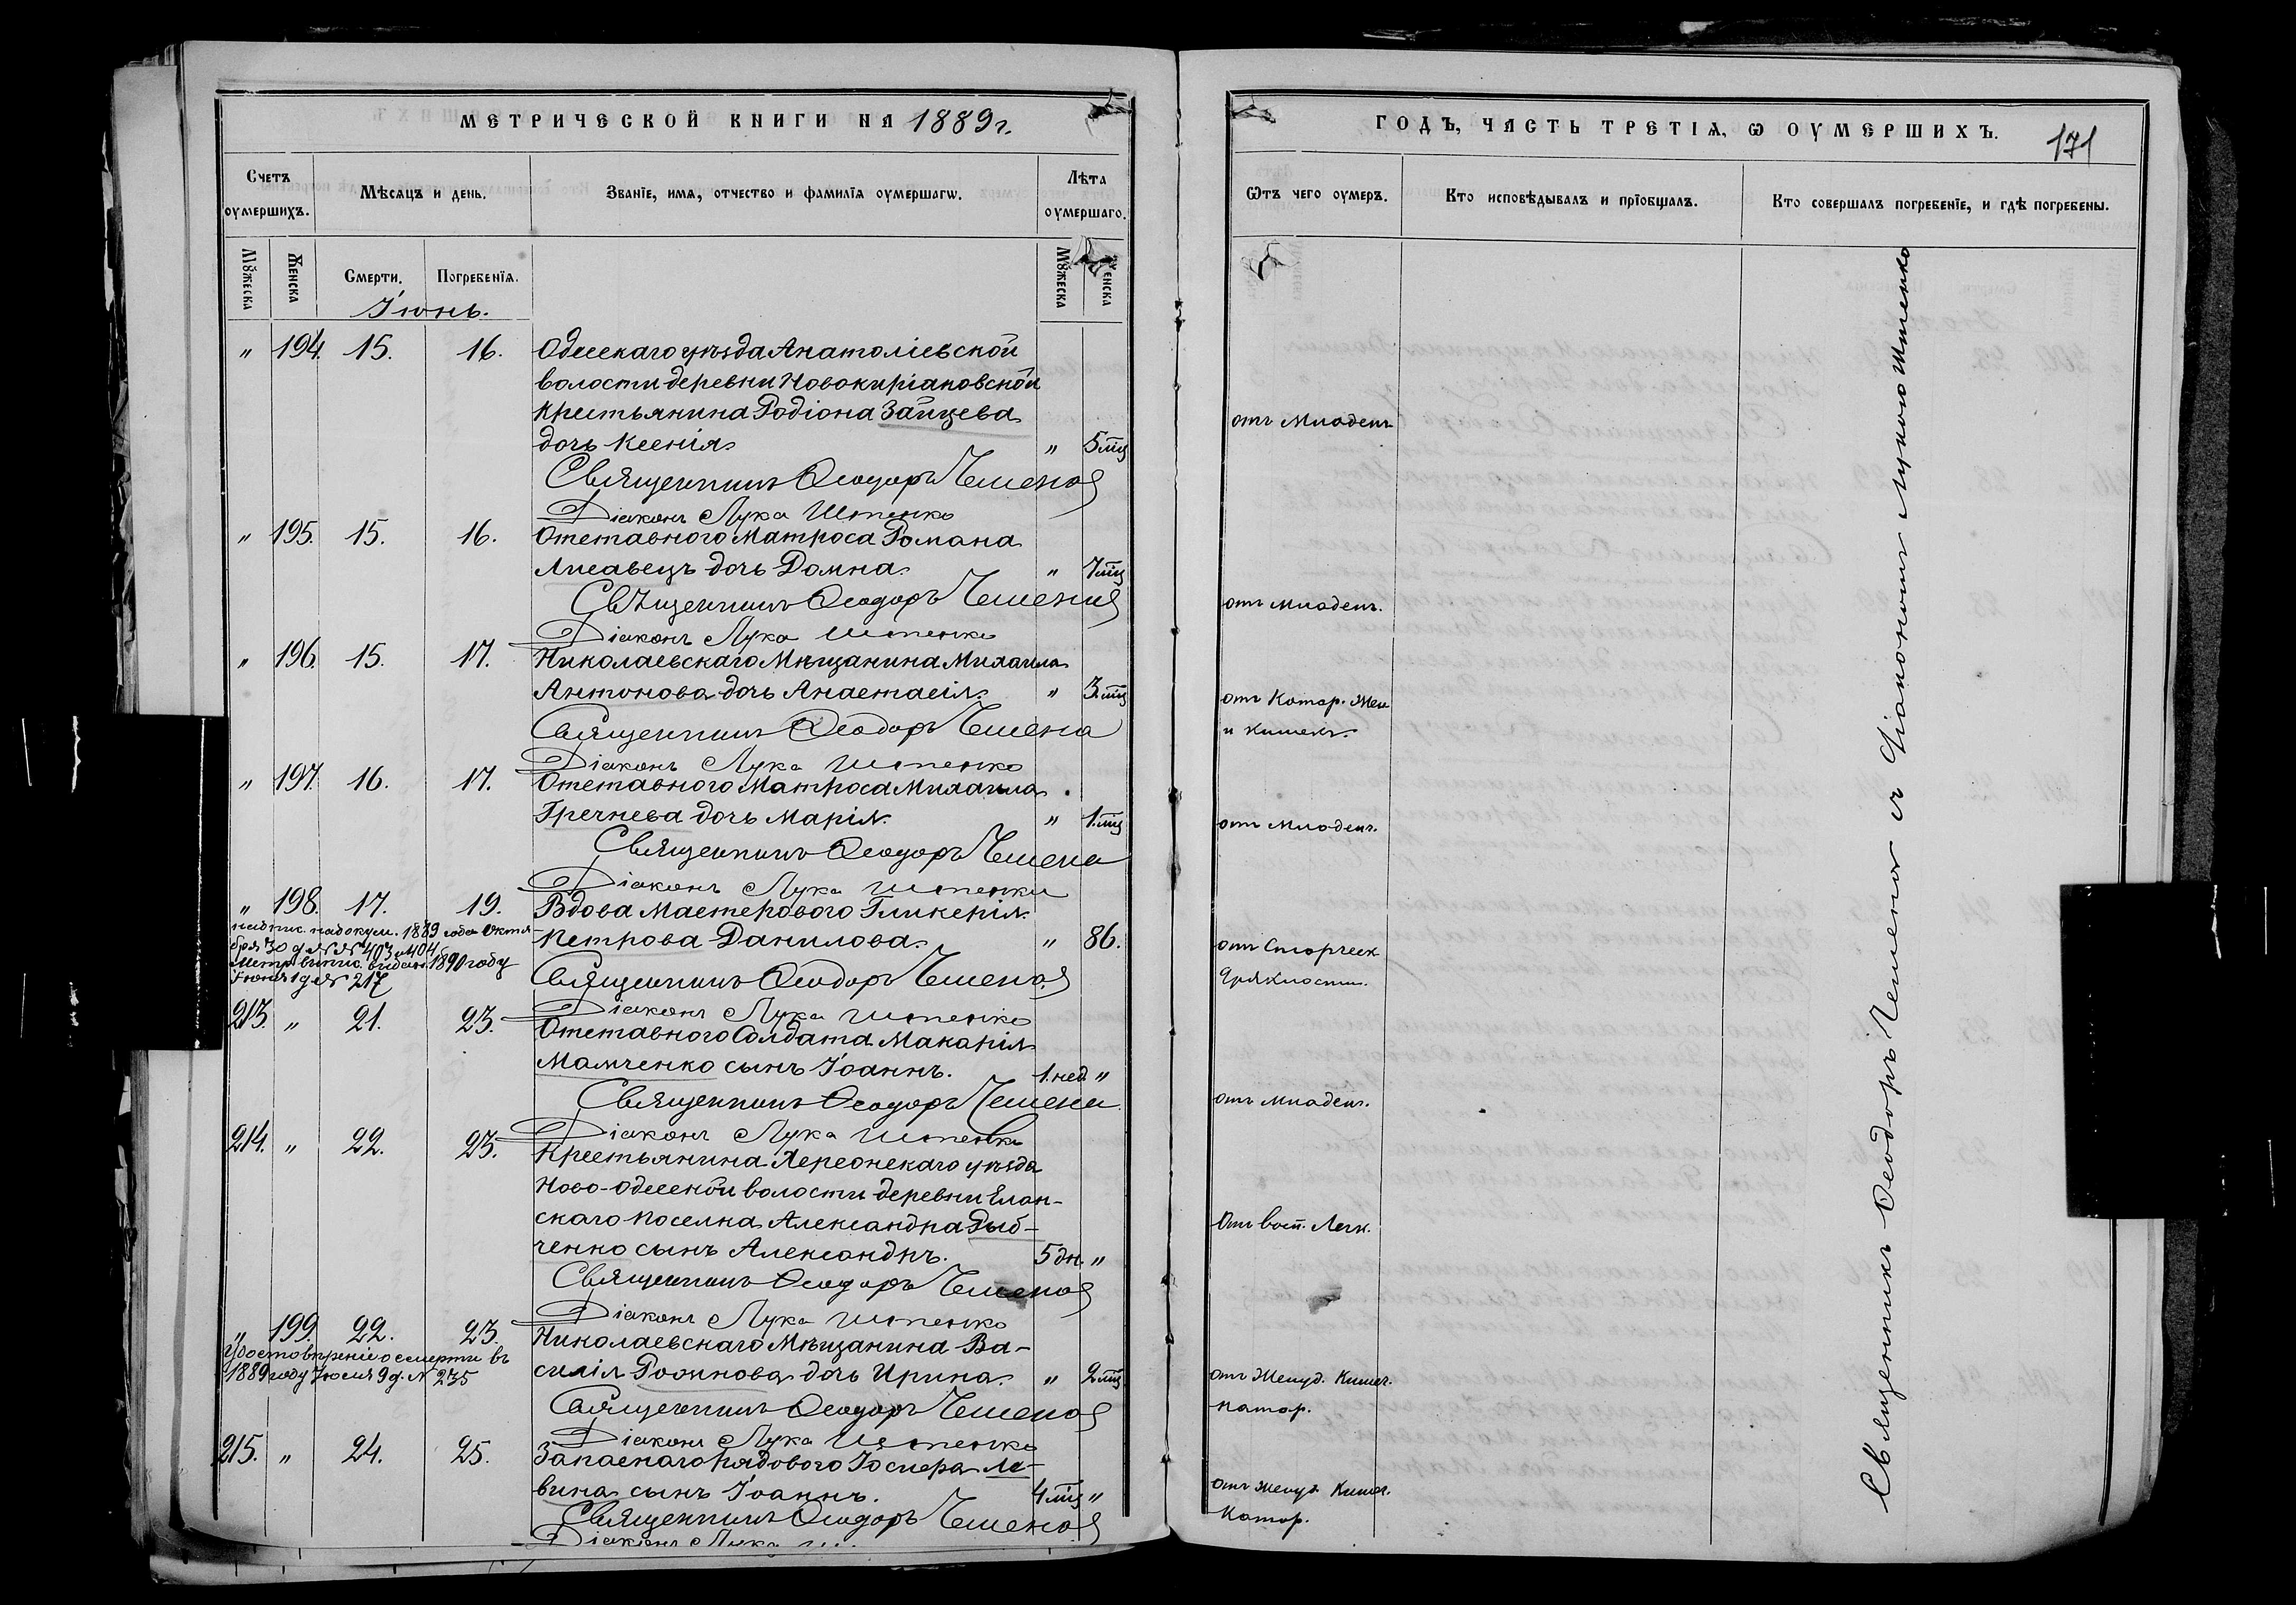 МЕТРИЧЕСКОЙ КНИГИ НА 1889 г.
Счетъ оумершихъ.
Мѣсяцъ и день.
Званіе, имя, отчество и фамилія оумершагѡ.
Лѣта оумершаго.
Мꙋжеска
Женска
Смерти.
Погребенія.
Мꙋжеска
Женска
Іюнь.
" 194. 15. 16. Одесскаго уѣзда Анатоліевской
волости деревни Новокиріаковской
крестьянина Родіона Зайцева
дочь Ксенія. " 5 мц
Священникъ Ѳеодоръ Чемена
Діаконъ Лука Штенко
" 195. 15. 16. Отставного Матроса Романа
Лисавецъ дочь Домна. " 7 мц
Священникъ Ѳеодоръ Чемена
Діаконъ Лука Штенко
" 196. 15. 17. Николаевскаго Мѣщанина Михаила
Антонова дочь Анастасія. " 3 мц
Священникъ Ѳеодоръ Чемена
Діаконъ Лука Штенко
" 197. 16. 17. Отставного Матроса Михаила
Гречнева дочь Марія. " 1 мц
Священникъ Ѳеодоръ Чемена
Діаконъ Лука Штенко
" 198. 17. 19. Вдова Мастерового Гликерія
Петрова Данилова. " 86.
надпис. на докум. 1889 года Октя
бря 30 д. №№ 403 и 404
Метр. выпис. выдана 1890 году
Іюня 1 д. № 217
Священникъ Ѳеодоръ Чемена
Діаконъ Лука Штенко
213. " 21. 23. Отставного Солдата Макарія
Мамченко сынъ Іоаннъ. 1. нед. "
Священникъ Ѳеодоръ Чемена
Діаконъ Лука Штенко
214. " 22. 23. Крестьянина Херсонскаго уѣзда
Ново-Одесской волости деревни Елан-
скаго поселка Александра Дыб-
ченко сынъ Александръ. 5 дн. "
Священникъ Ѳеодоръ Чемена
Діаконъ Лука Штенко
" 199. 22. 23. Николаевскаго Мѣщанина Ва-
силія Рожнова дочь Ирина. " 2 мц
Удостовѣреніе о смерти въ
1889 году Іюля 9 д. № 235
Священникъ Ѳеодоръ Чемена
Діаконъ Лука Штенко
215. " 24. 25. Запаснаго рядового Іосифа Ле-
вина сынъ Іоаннъ. 4 мц "
Священникъ Ѳеодоръ Чемена
Діаконъ Лука
ГОДЪ, ЧАСТЬ ТРЕТІЯ, Ѡ ОУМЕРШИХЪ.
171
Ѿтъ чего оумеръ.
Кто исповѣдывалъ и пріобщалъ.
Кто совершалъ погребеніе, и гдѣ погребены.
отъ Младен.
отъ младен.
отъ Катар. Жел
и кишекъ.
отъ Младен.
отъ Старческ
дряхлости.
отъ младен.
отъ восп. Легк.
отъ Желуд. Кишеч.
катар.
отъ желуд. Кишеч.
Катар.
Священникъ Ѳеодоръ Чемена съ Діакономъ Лукою Штенко